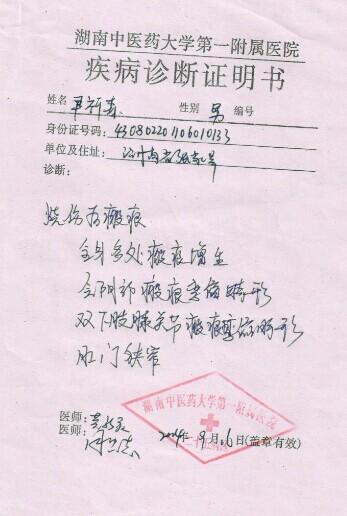 湖南中医药大学第一附属医院
疾病诊断证明书
姓名 性别 男 编号
身份证号码: 430802201106010133
单位及住址: 湖南省张家界
诊断:
烧伤后瘢痕
全身多处瘢痕增生
会阴部瘢痕挛缩畸形
双下肢膝关节瘢痕挛缩畸形
肛门狭窄
湖南中医药大学第一附属医院
医师:
医师: 2014年9月16日(盖章有效)